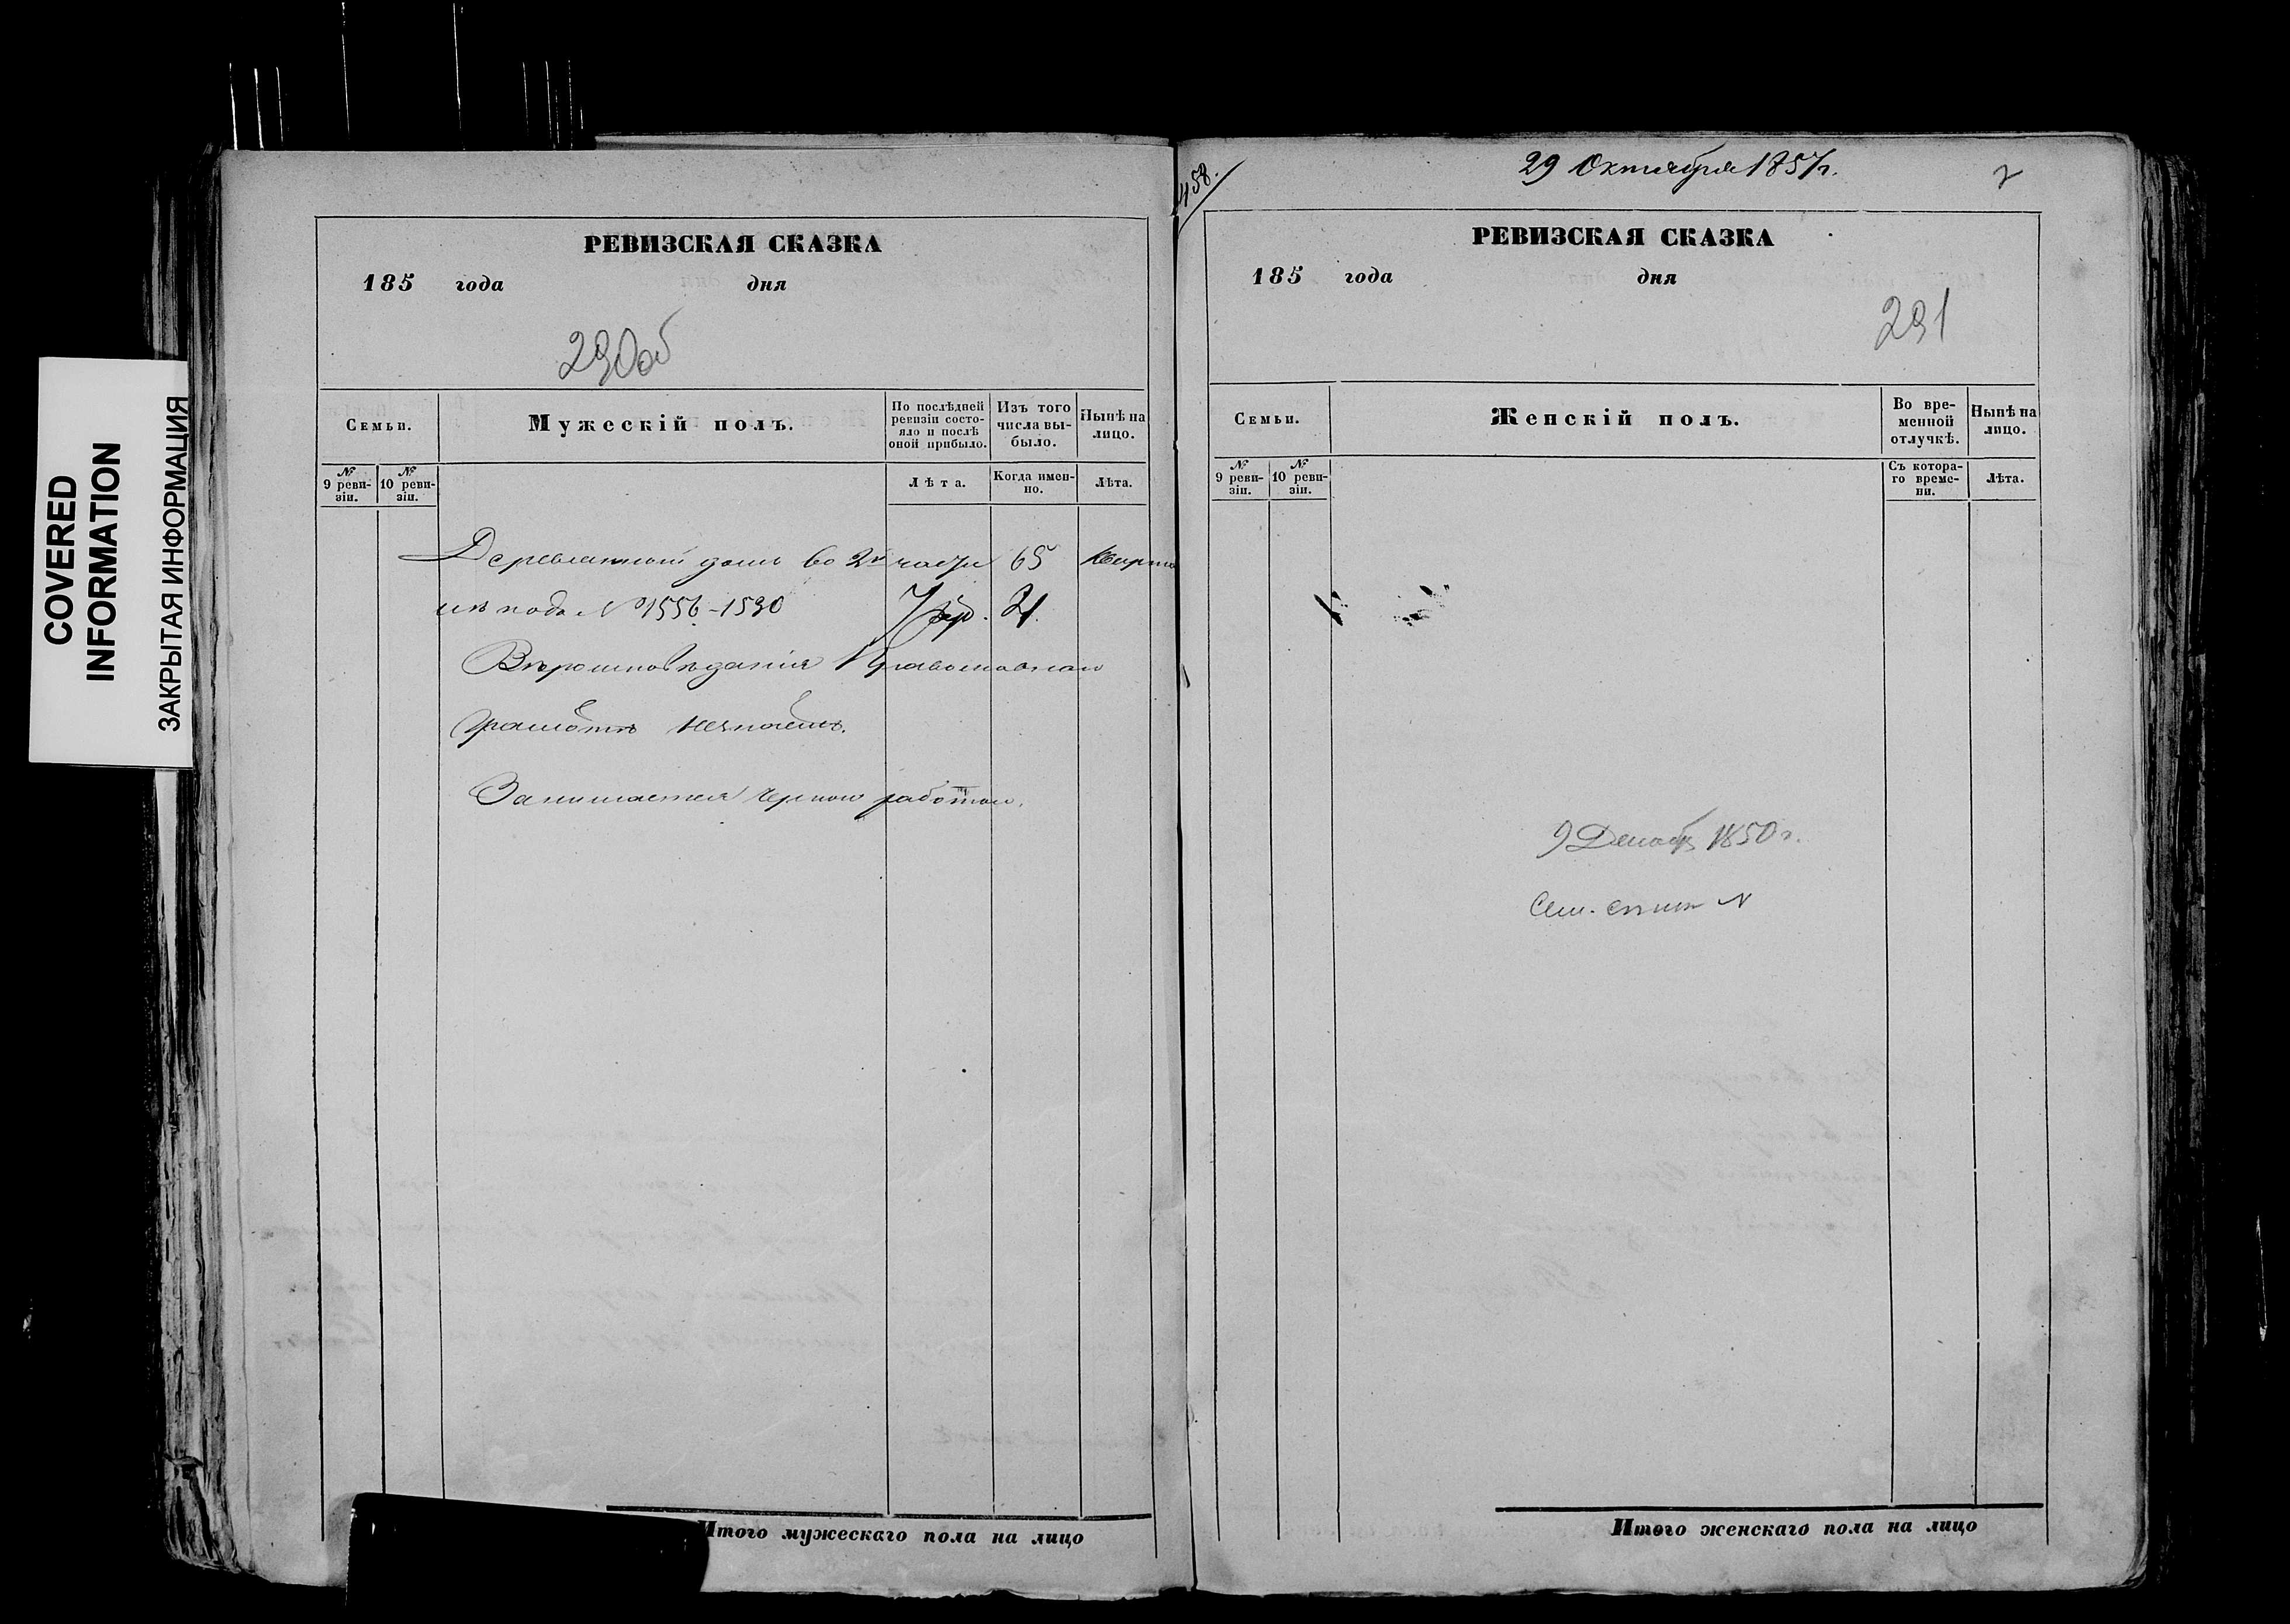 COVERED
INFORMATION
ЗАКРЫТАЯ ИНФОРМАЦИЯ
РЕВИЗСКАЯ СКАЗКА
185 года дня
290об
Семьи.
Мужескій полъ.
По послѣдней ревизіи состояло и послѣ оной прибыло.
Изъ того числа выбыло.
Нынѣ на лицо.
№ 9 ревизіи.
№ 10 ревизіи.
Лѣта.
Когда именно.
Лѣта.
Деревянный домъ во 2й части 65
подъ № 1556-1530
Вѣроисповѣданія Православнаго
Грамотѣ
Занимается черною работою.
Итого мужескаго пола на лицо
458.
29 Октября 1857г.
РЕВИЗСКАЯ СКАЗКА
185 года дня
291
Семьи.
Женскій полъ.
Во временной отлучкѣ.
Нынѣ на лицо.
№ 9 ревизіи.
№ 10 ревизіи.
Съ котораго времени.
Лѣта.
9 Декабр 1850 г.
Сем. спис №
Итого женскаго пола на лицо